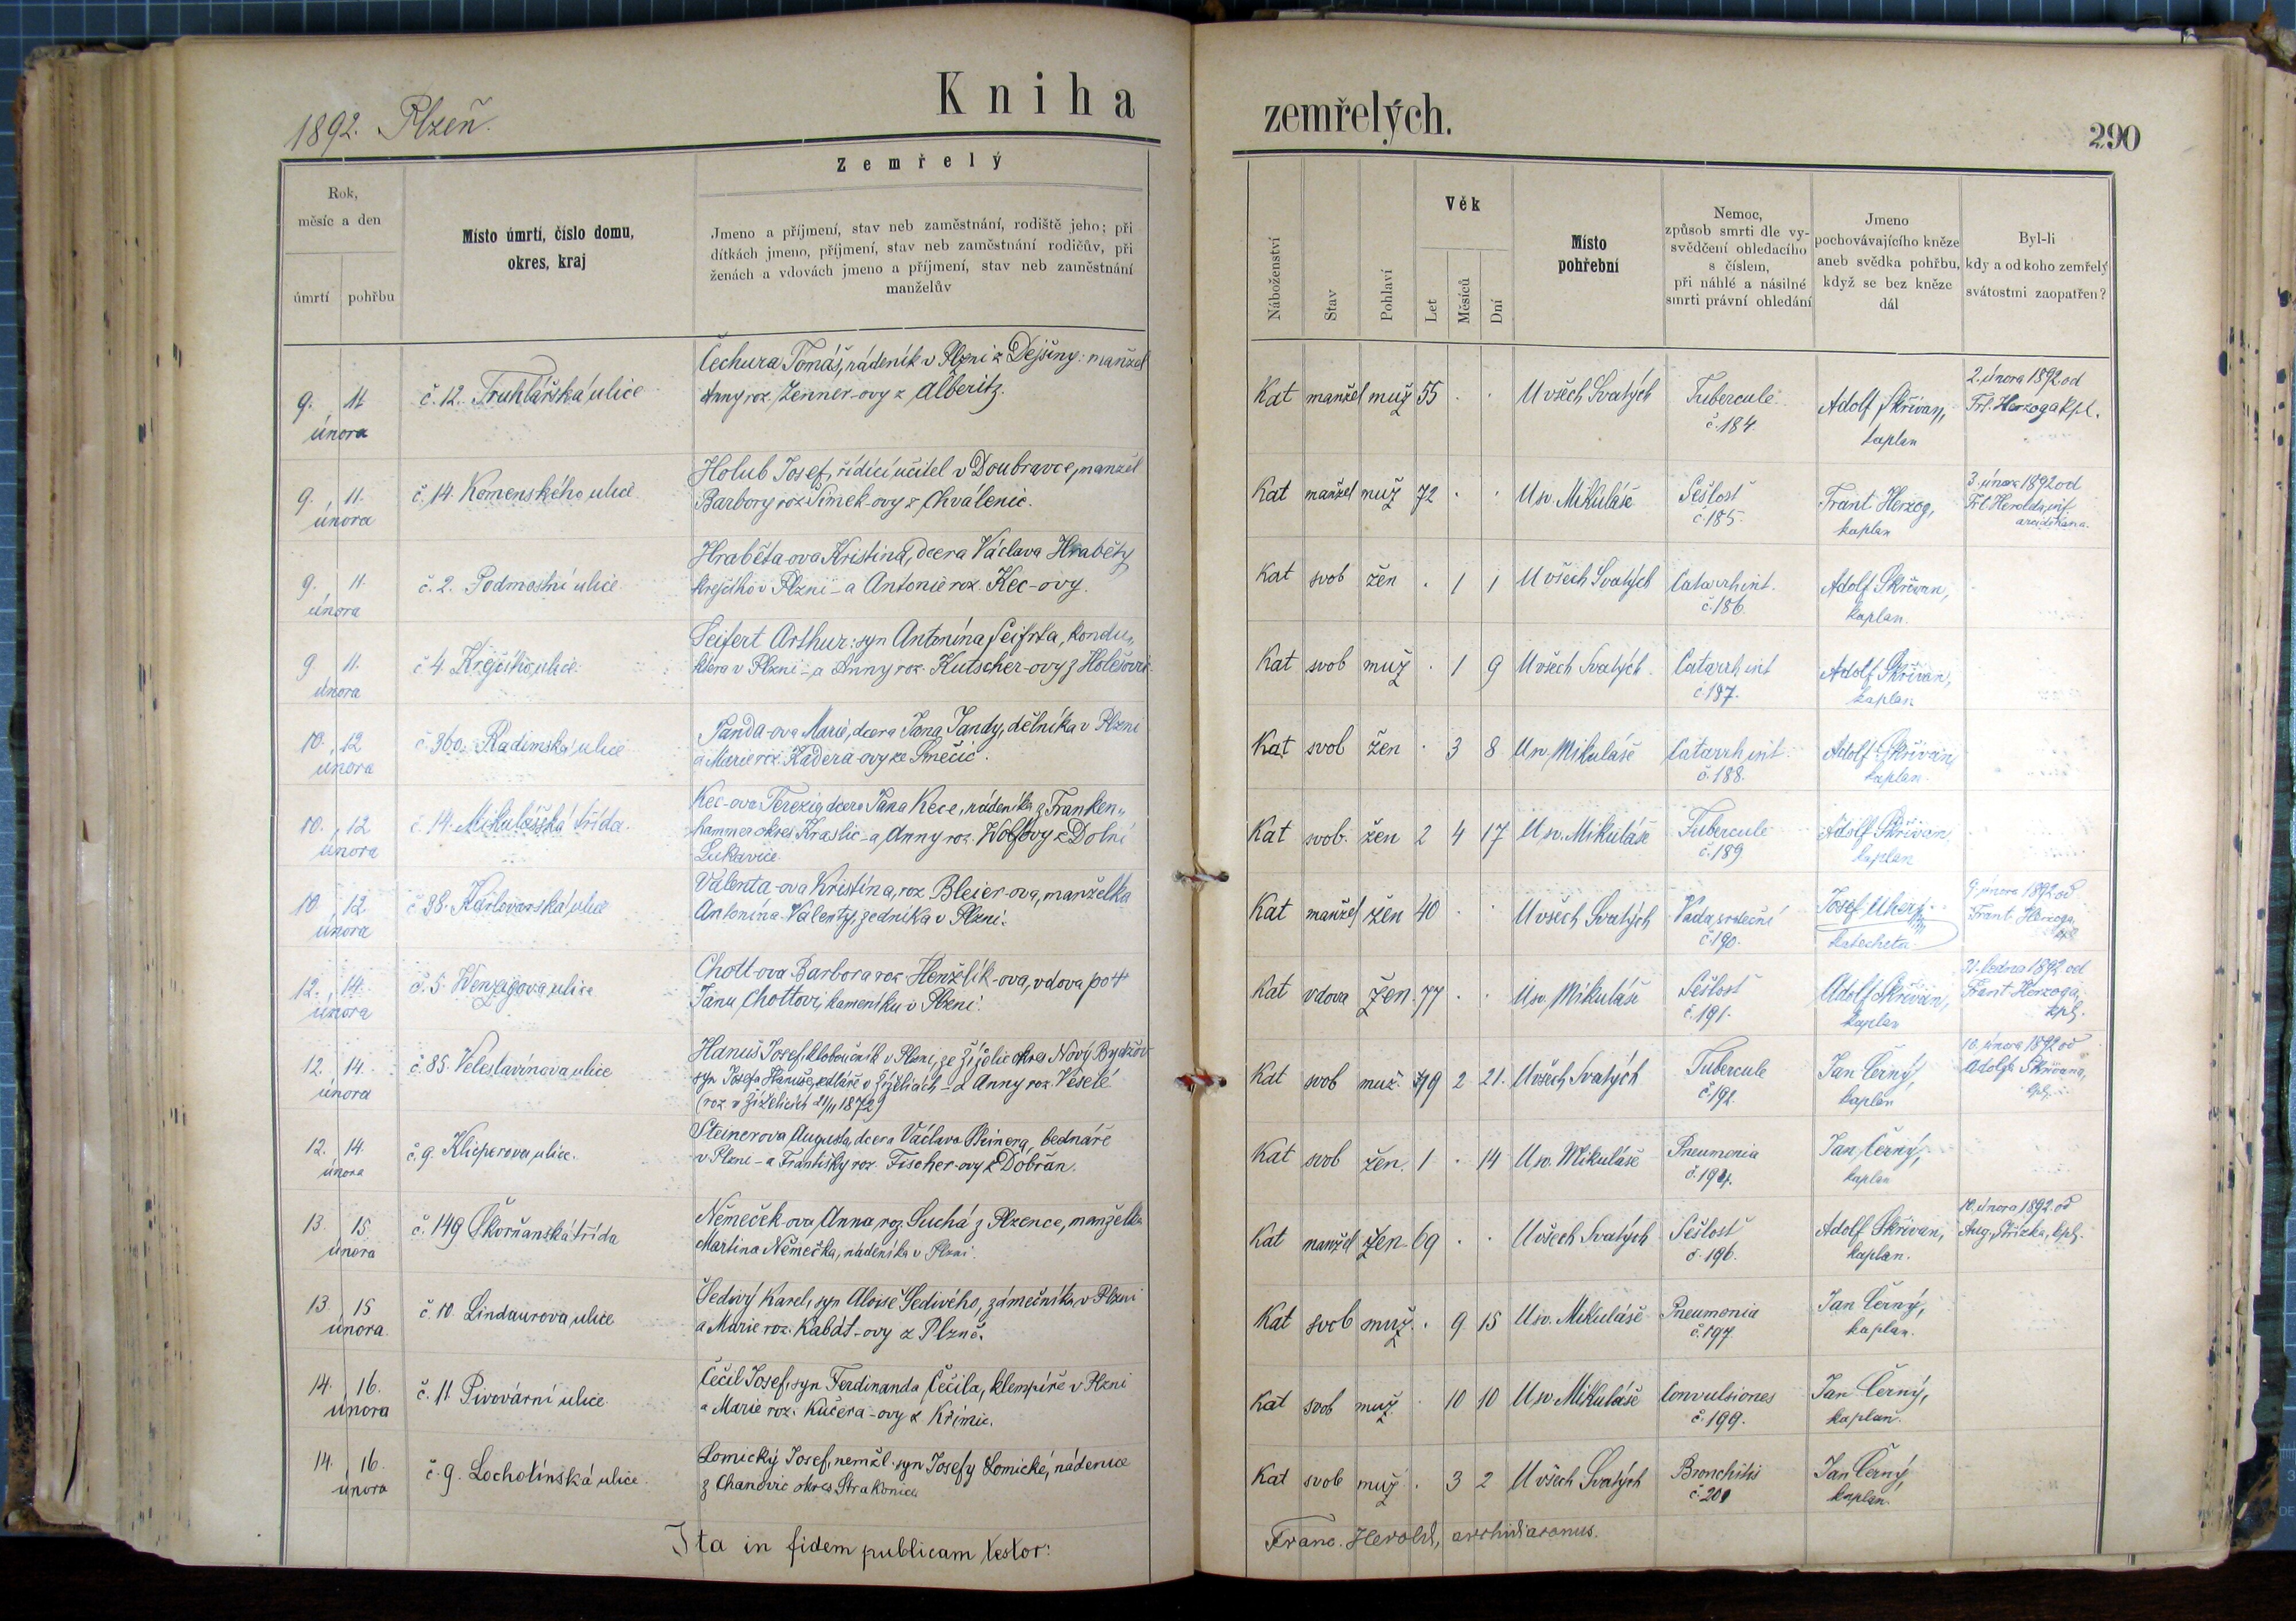 1892. Plzeň.
Kniha
zemřelých.
290
Rok,
měsíc a den
úmrtí
pohřbu
Místo úmrtí, číslo domu,
okres, kraj
Zemřelý
Jmeno a příjmení, stav neb zaměstnání, rodiště jeho; při
dítkách jmeno, příjmení, stav neb zaměstnání rodičův, při
ženách a vdovách jmeno a příjmení, stav neb zaměstnání
manželův
Náboženství
Stav
Pohlaví
Věk
Let
Měsíců
Dní
Místo
pohřební
Nemoc,
způsob smrti dle vy-
svědčení ohledacího
s číslem,
při náhlé a násilné
smrti právní ohledání
Jmeno
pochovávajícího kněze
aneb svědka pohřbu,
když se bez kněze
dál
Byl-li
kdy a od koho zemřelý
svátostmi zaopatřen?
9. 11
února
č. 12. Truhlářská ulice
Čechura Tomáš, nádeník v Plzni z Dejšiny: manžel
Anny roz. Zenner-ovy z Alberitz.
Kat manžel muž 55 . . U všech Svatých
Tubercule
č. 184.
Adolf Skřivan,
kaplan
2. února 1892 od
Frt. Herzoga kpl.
9. 11.
února
č. 14. Komenského ulice
Holub Josef, řídící učitel v Doubravce, manžel
Barbory roz Šimek-ovy z Chválenic.
Kat manžel muž 72 . . U sv. Mikuláše
Sešlosť
č. 185.
Frant Herzog,
kaplan
3. února 1892 od
Frt. Herolda, inf.
arciděkana.
9. 11.
února
č. 2. Podmostní ulice
Hraběta-ova Kristina, dcera Václava Hraběty
krejčího v Plzni - a Antonie roz. Kec-ovy.
Kat svob žen . 1 1 U všech Svatých
Catarrh int.
č. 186.
Adolf Skřivan,
kaplan.
9 11.
února
č 4. Krejčího ulice
Seifert Arthur: syn Antonína Seifrta, kondu„
ktera v Plzni - a Anny roz. Kutscher-ovy z Holešovic
Kat svob muž . 1 9 U všech Svatých
Catarrh int
č. 187.
Adolf Skřivan,
kaplan
10. 12
února
č. 360. Radimská ulice
Janda-ova Marie, dcera Jana Jandy, dělníka v Plzni
a Marie roz. Kadera-ovy ze Smečic.
Kat svob žen . 3 8 U sv. Mikuláše
Catarrh int
č. 188.
Adolf Skřivan,
kaplan.
10. 12
února
č. 14. Mikulášská třída.
Kec-ova Terezia, dcera Jana Kece, nádeníka z Franken„
hammer okres Kraslic - a Anny roz. Wolfovy z Dolní
Lukavice
Kat svob. žen 2 4 17 U sv. Mikuláše
Tubercule
č. 189
Adolf Skřivan,
kaplan
10 12
února
č 38. Karlovarská ulice
Valenta-ova Kristína, roz Bleier-ova, manželka
Antonína Valenty, zedníka v Plzni.
Kat manžel žen 40 . . U všech Svatých
Vada srdeční
č. 190.
Josef Uherý
katecheta
9. února 1892 od
Frant Herzoga,
kpl
12. 14.
února
č. 5. Wenzigova ulice
Chott-ova Barbora roz Henžlík-ova, vdova po †
Janu Chottovi, kameníku v Plzni.
Kat vdova žen 77 . . U sv. Mikuláše
Sešlosť
č. 191.
Adolf Skřivan,
kaplan
31. ledna 1892 od
Frant Herzoga,
kpl.
12. 14.
února
č. 85. Veleslavínova ulice
Hanuš Josef, kloboučník v Plzni, ze Žíželic okres Nový Bydžov
syn Josefa Hanuše, sedláře v Žíželicích - a Anny roz. Veselé
(roz v Žíželicích 21/11 1872)
Kat svob muž 19 2 21. U všech Svatých
Tubercule
č. 192.
Jan Černý,
kaplan
10. února 1892 od
Adolfa Skřivana,
kpl.
12. 14.
února
č. 9. Klicperova ulice.
Steinerova Augusta, dcera Václava Steinera, bednáře
v Plzni - a Františky roz. Fischer-ovy z Dobřan.
Kat svob žen. 1 . 14 U sv. Mikuláše
Pneumonia
č. 194.
Jan Černý,
kaplan
13. 15
února
č. 149 Skvrňanská třída
Němeček-ova Anna, roz. Suchá z Plzence, manželka
Martina Němečka, nádeníka v Plzni.
Kat manžel žen 69 . . U všech Svatých
Sešlosť
č. 196.
Adolf Skřivan,
kaplan.
10. února 1892. od
Aug. Střízka, kpl.
13. 15
února.
č. 10. Lindaurova ulice
Šedivý Karel, syn Aloise Šedivého, zámečníka v Plzni
a Marie roz. Kabát-ovy z Plzně.
Kat svob muž . 9 15 U sv. Mikuláše
Pneumonia
č. 197
Jan Černý,
kaplan.
14. 16.
února
č. 11. Pivovární ulice.
Čečil Josef, syn Ferdinanda Čečila, klempíře v Plzni
a Marie roz. Kučera-ovy z Křimic.
Kat svob muž . 10 10 U sv. Mikuláše
Convulsiones
č. 199.
Jan Černý,
kaplan.
14. 16.
února
č. 9. Lochotínská ulice.
Lomický Josef, nemžl. syn Josefy Lomické, nádenice
z Chanovic okres Strakonice
Kat svob muž . 3 2 U všech Svatých
Bronchitis
č. 201
Jan Černý,
kaplan.
Ita in fidem publicam testor:
Franc. Herold, archidiaconus.